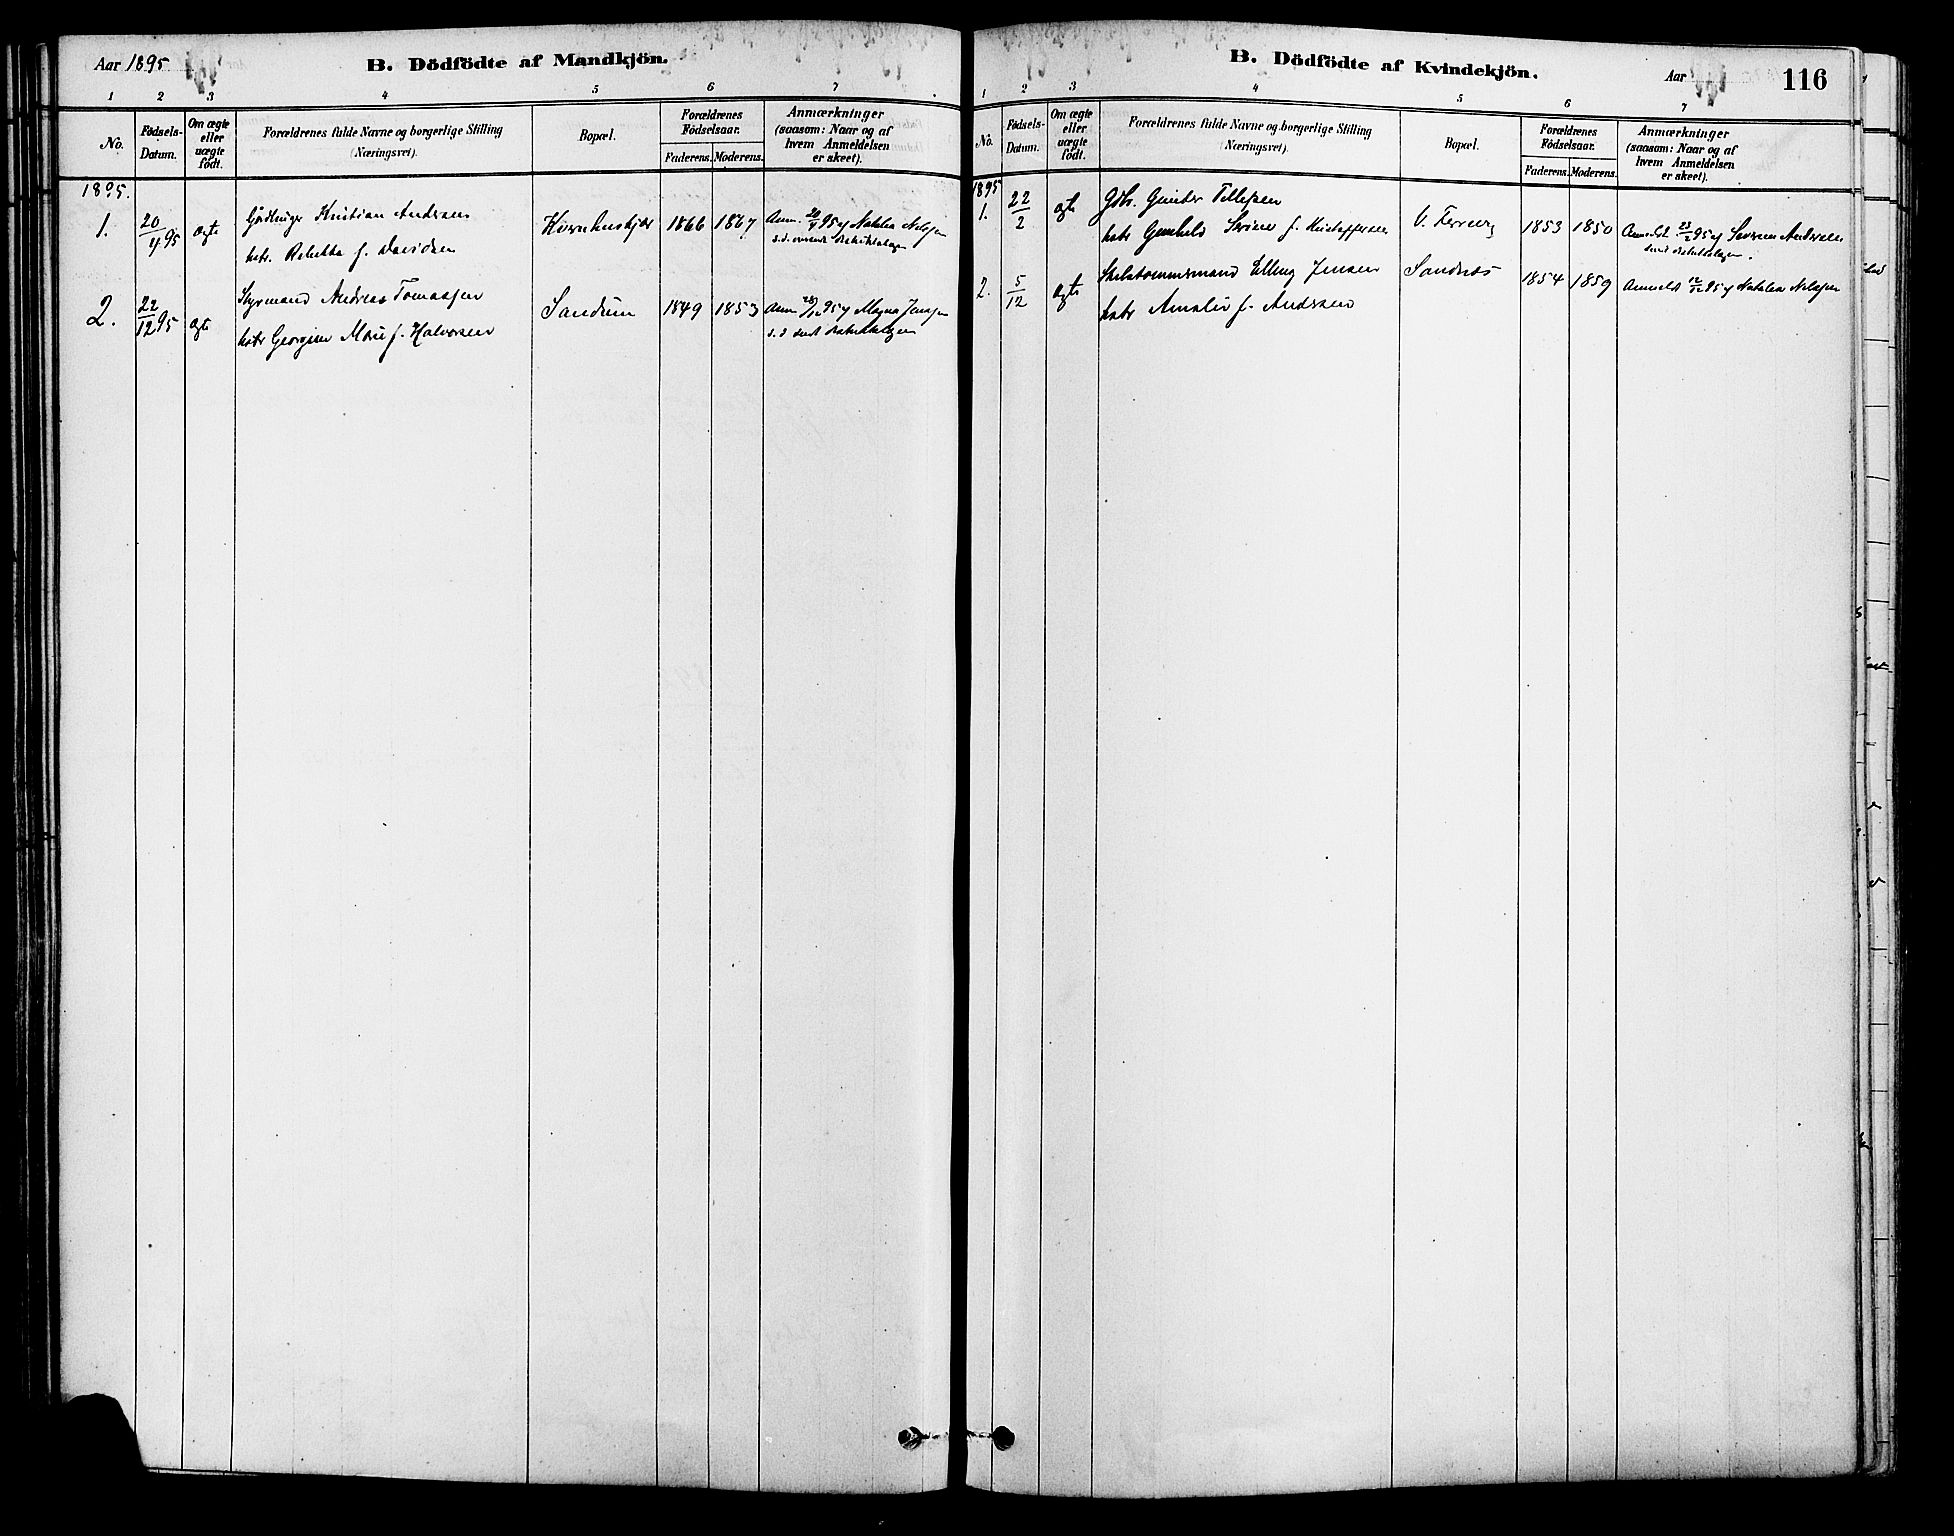 Aar 1895
B. Dödfödte af Mandkjön.
1 2 3 4 5 6 7
No.
Födsels-Datum.
Om ægte eller uægte födt.
Forældrenes fulde Navne og borgerlige Stilling (Næringsvei).
Bopæl.
Forældrenes Födselsaar.
Faderens. Moderens.
Anmærkninger (saasom: Naar og af hvem Anmeldelsen er skeet).
1895.
1. 20/4 95 ægte Kristian Andersen 1866 1867 Anm. 20/4 95 af Natalia Nilsen
hstr. Rebekka f. Davidsen
2. 22/12 95 ægte Styrmand Andreas Tomassen Sandum 1849 1853 Anm 28/12 95 af Magna Jensen
hstr Georgine Marie f. Halvorsen
B. Dödfödte af Kvindekjön.
Aar
116
1 2 3 4 5 6 7
No.
Födsels-Datum.
Om ægte eller uægte födt.
Forældrenes fulde Navne og borgerlige Stilling (Næringsvei).
Bopæl.
Forældrenes Födselsaar.
Faderens. Moderens.
Anmærkninger (saasom: Naar og af hvem Anmeldelsen er skeet).
1895
1. 22/2 ægte Gdbr. Gunder Tellefsen 1853 1850 Anmeldt 23/2 95 af Severine Andersen
hstr Gunhild f. Kristoffersen
2. 5/12 ægte Skibstømmermand Elling Jensen Sandnes 1854 1859 Anmeldt 12/12 95 af Natalia Nilsen
hstr Amalie f. Andersen